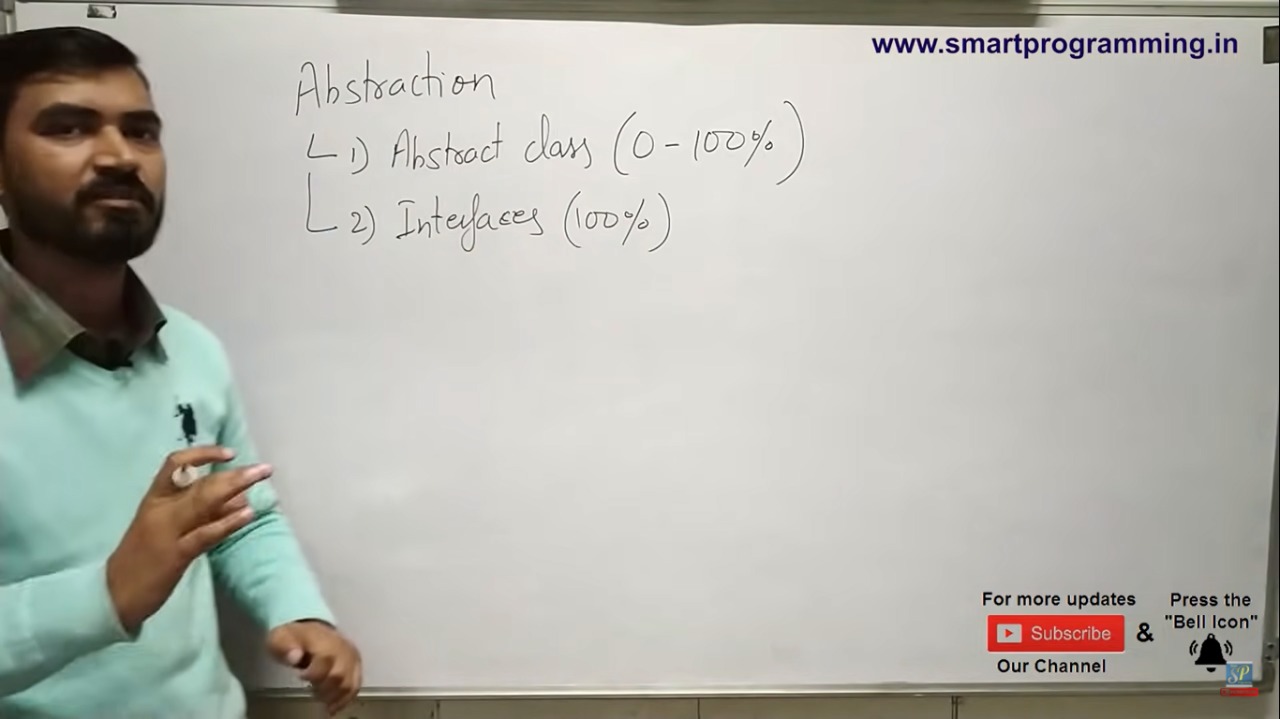 www.smartprogramming.in
Abstraction
1) Abstract class (0-100%)
2) Interfaces (100%)
For more updates
Subscribe
&
Our Channel
Press the
"Bell Icon"
SP